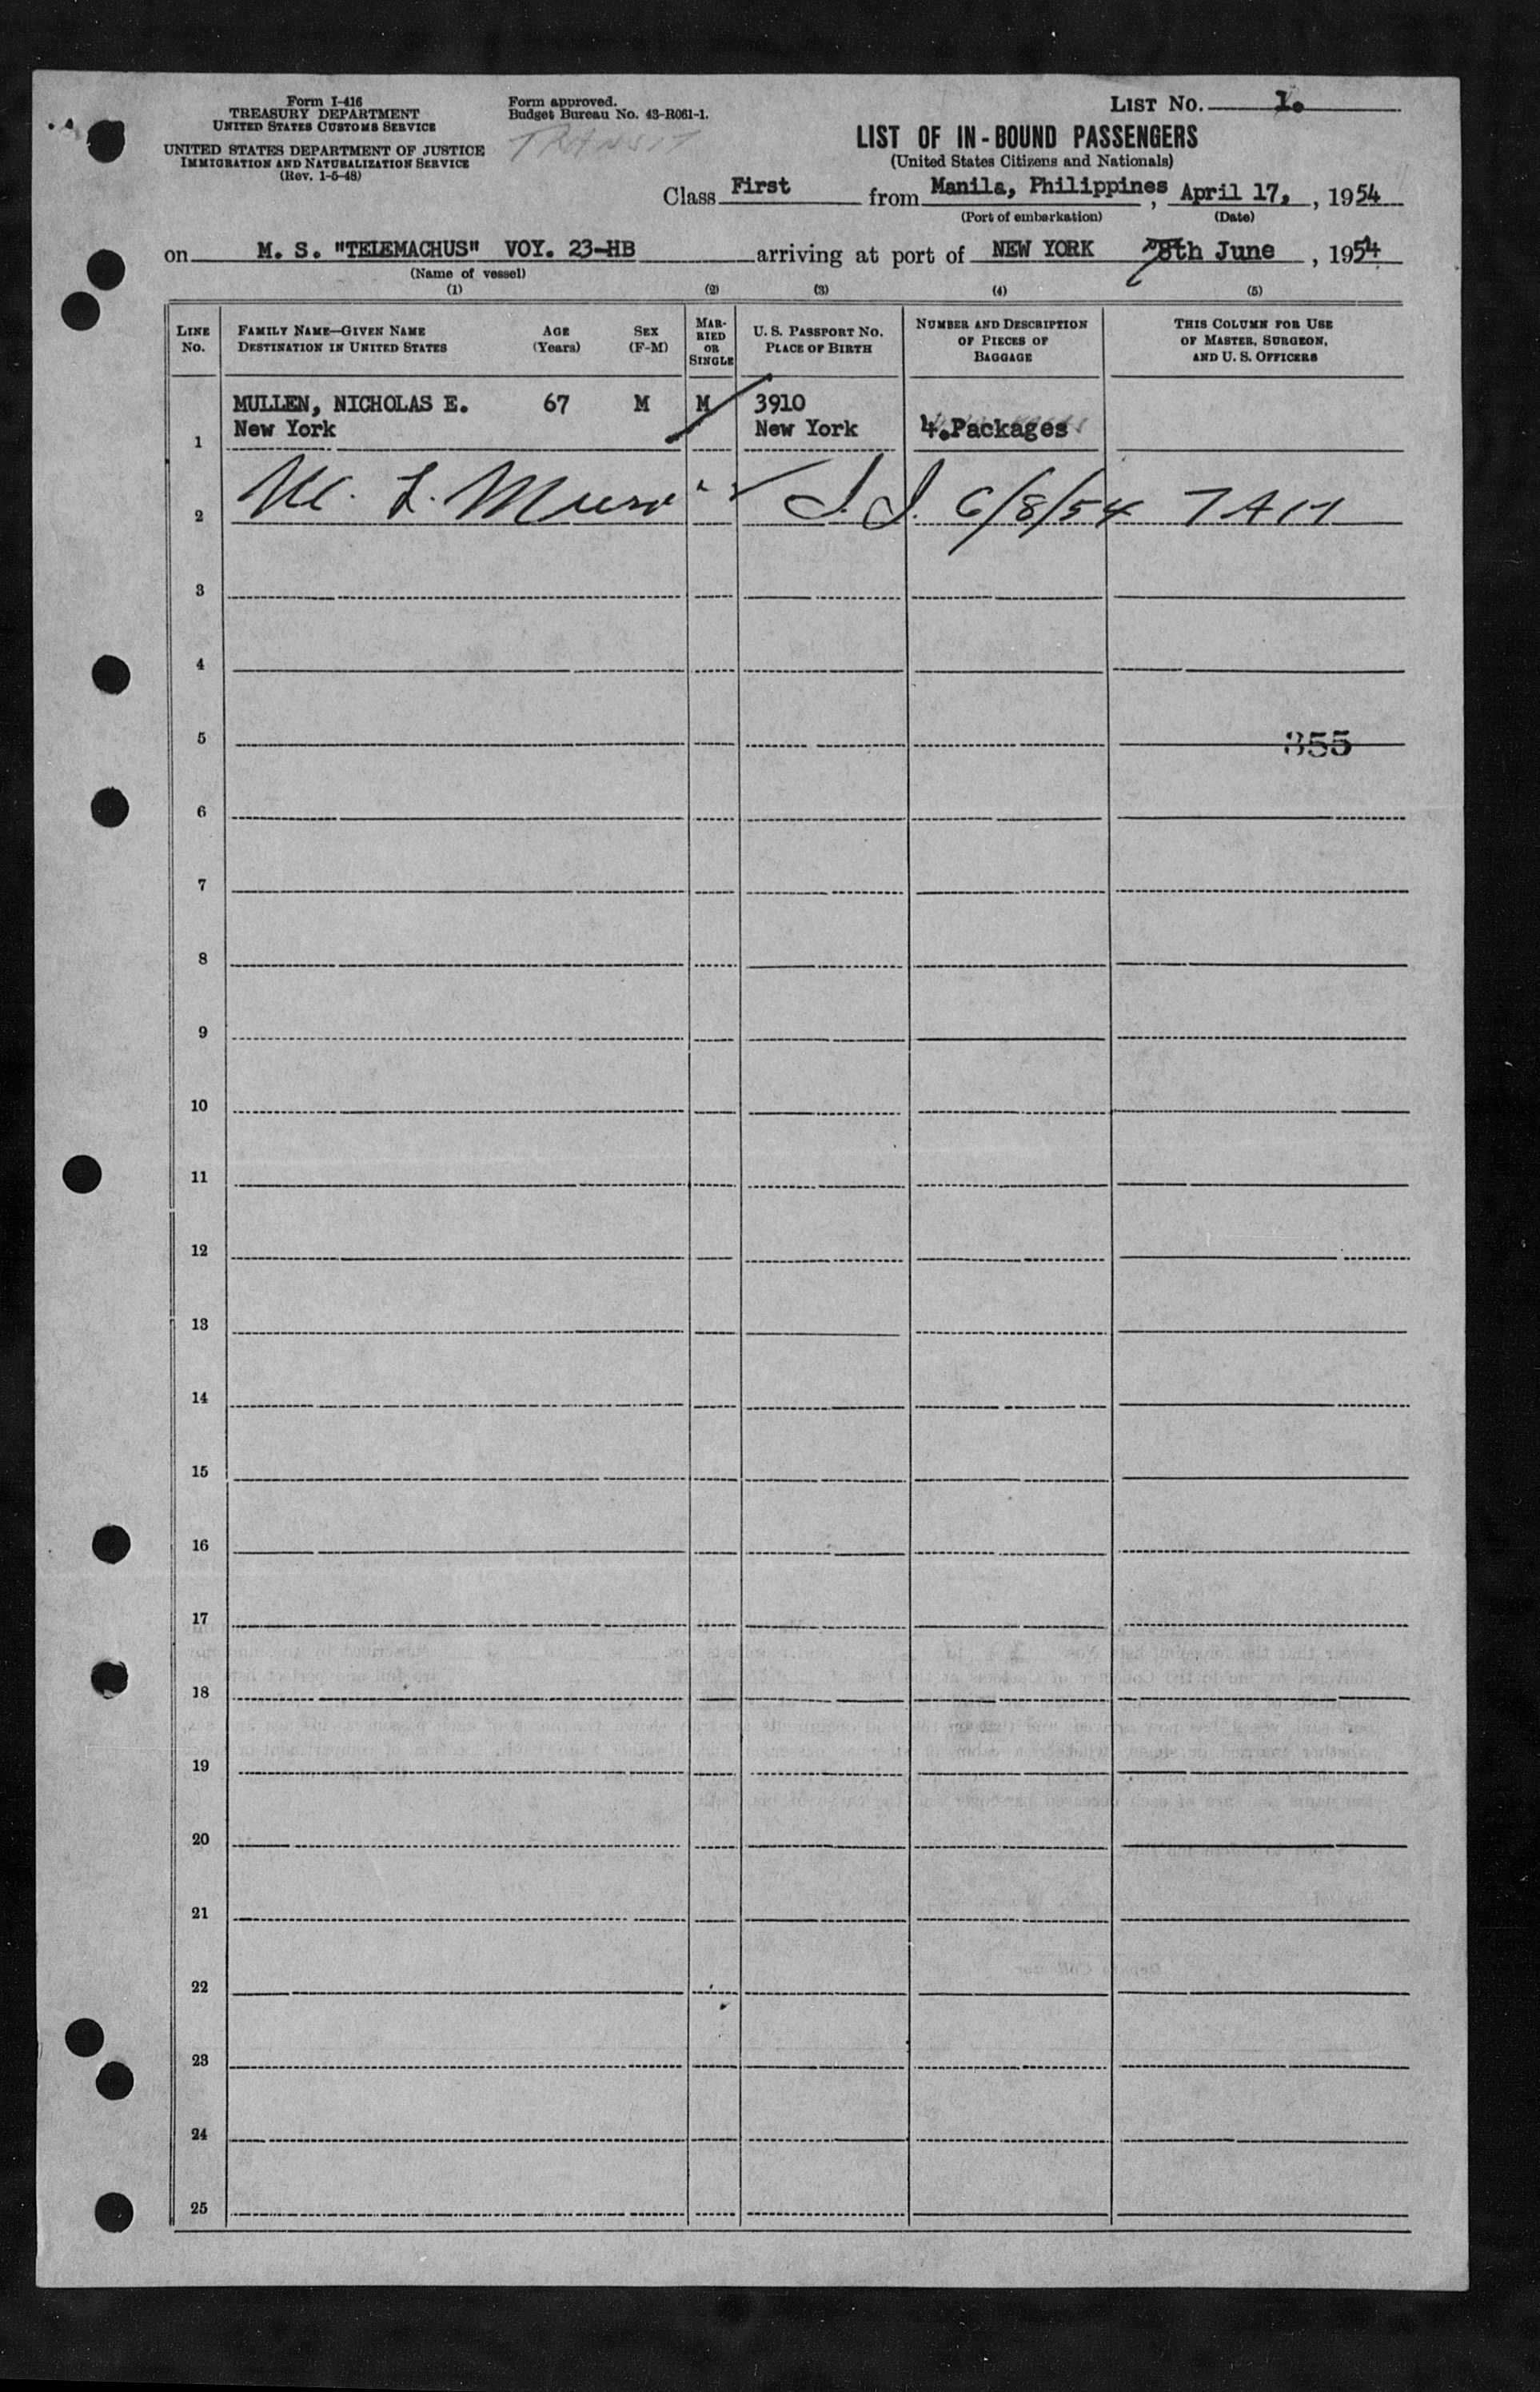 Form I-416
TREASURY DEPARTMENT
UNITED STATES CUSTOMS SERVICE
UNITED STATES DEPARTMENT OF JUSTICE
IMMIGRATION AND NATURALIZATION SERVICE
(Rev. 1-5-48)
Form approved.
Budget Bureau No. 43-R061-1.
TRANSIT
LIST No. 1.
LIST OF IN-BOUND PASSENGERS
(United States Citizens and Nationals)
Class First from Manila, Philippines, April 17, , 1954
(Port of embarkation) (Date)
on M. S. "TELEMACHUS" VOY. 23-HB arriving at port of NEW YORK 8th June , 1954
(Name of vessel)
(1) (2) (3) (4) (5)
LINE No.
FAMILY NAME—GIVEN NAME
DESTINATION IN UNITED STATES
AGE (Years)
SEX (F-M)
MARRIED OR SINGLE
U. S. PASSPORT NO.
PLACE OF BIRTH
NUMBER AND DESCRIPTION OF PIECES OF BAGGAGE
THIS COLUMN FOR USE OF MASTER, SURGEON, AND U. S. OFFICERS
MULLEN, NICHOLAS E. 67 M M 3910
1 New York New York 4.Packages
2 6/8/54 7 AM
3
4
5 355
6
7
8
9
10
11
12
13
14
15
16
17
18
19
20
21
22
23
24
25